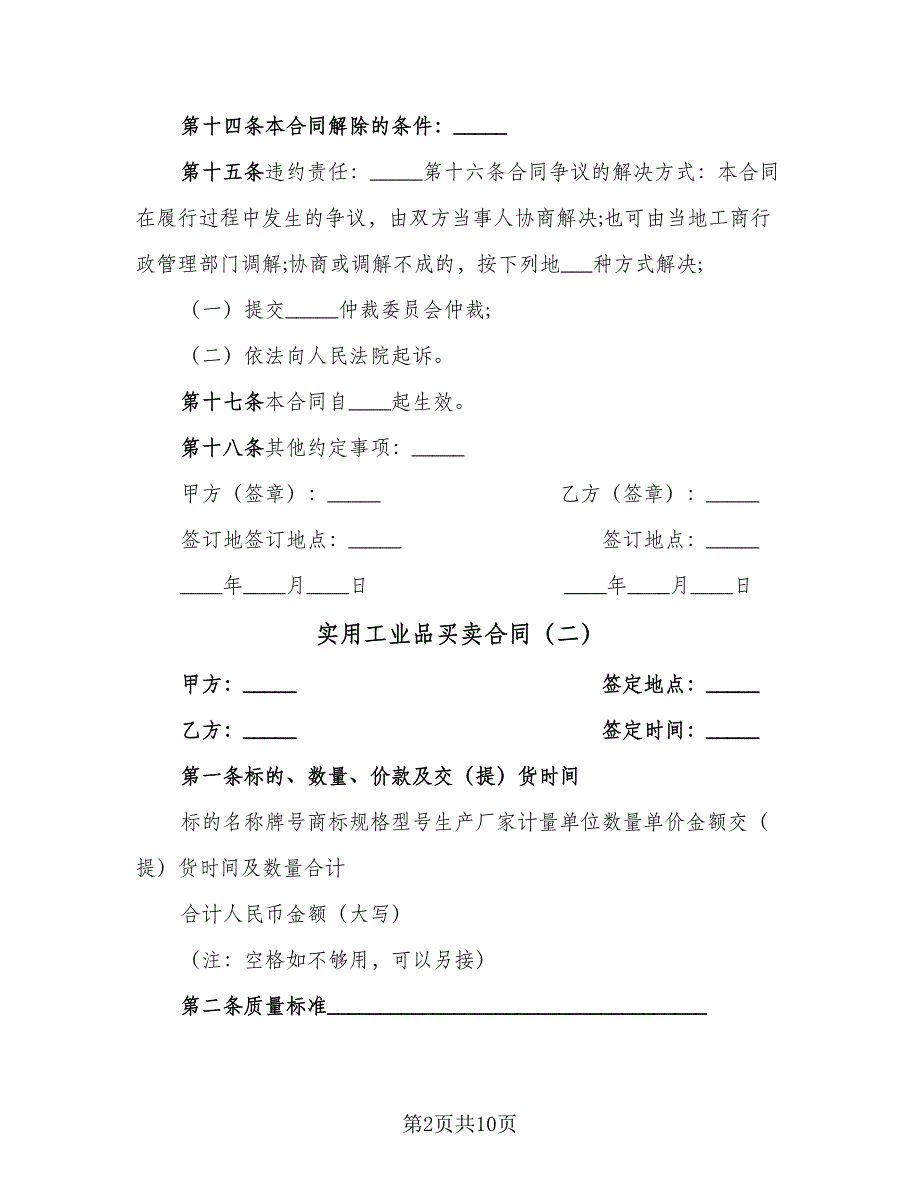 第十四条本合同解除的条件：_____
第十五条违约责任：_____第十六条合同争议的解决方式：本合同
在履行过程中发生的争议，由双方当事人协商解决;也可由当地工商行
政管理部门调解;协商或调解不成的，按下列地___种方式解决;
（一）提交_____仲裁委员会仲裁;
（二）依法向人民法院起诉。
第十七条本合同自____起生效。
第十八条其他约定事项：_____
甲方（签章）：_____ 乙方（签章）：_____
签订地签订地点：_____ 签订地点：_____
____年____月____日 ____年____月____日
实用工业品买卖合同（二）
甲方：_____ 签定地点：_____
乙方：_____ 签定时间：_____
第一条标的、数量、价款及交（提）货时间
标的名称牌号商标规格型号生产厂家计量单位数量单价金额交（
提）货时间及数量合计
合计人民币金额（大写）
（注：空格如不够用，可以另接）
第二条质量标准____________________________________
第2页共10页